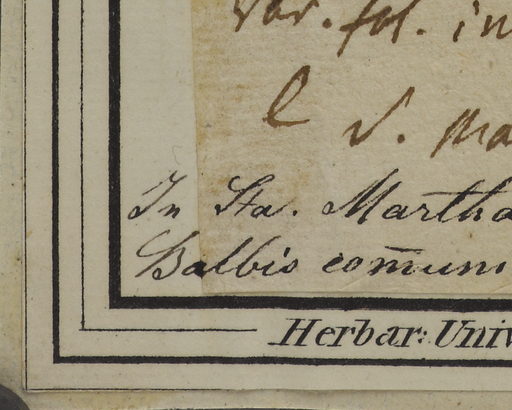 var. fol. in
e S. Ma
In Sta. Martha
Balbis com̄uni
Herbar: Univ